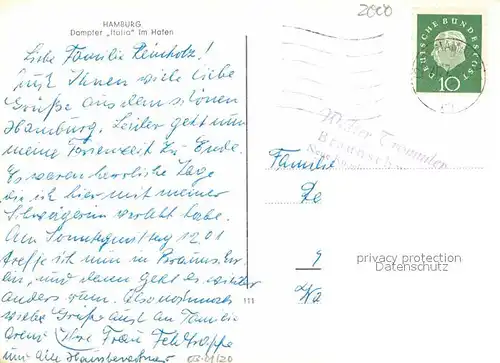 HAMBURG
Dampfer „Italia" im Hafen
2000
Liebe Familie Reinholz!
Ihnen viele liebe
Grüße aus dem schönen
Hamburg. Leider geht nun
meine Ferienzeit zu Ende.
Es waren herrliche Tage
die ich hier mit meiner
Schwägerin verlebt habe.
Am 12.01
treffe ich nun in
an, und dann geht es wieder
anders rum. Also nochmals
viele Grüße auch an Familie
Ihre Frau
und alle Hausbewohner
DEUTSCHE BUNDESPOST
10
Walter Trommler
Familie
111
privacy protection
Datenschutz